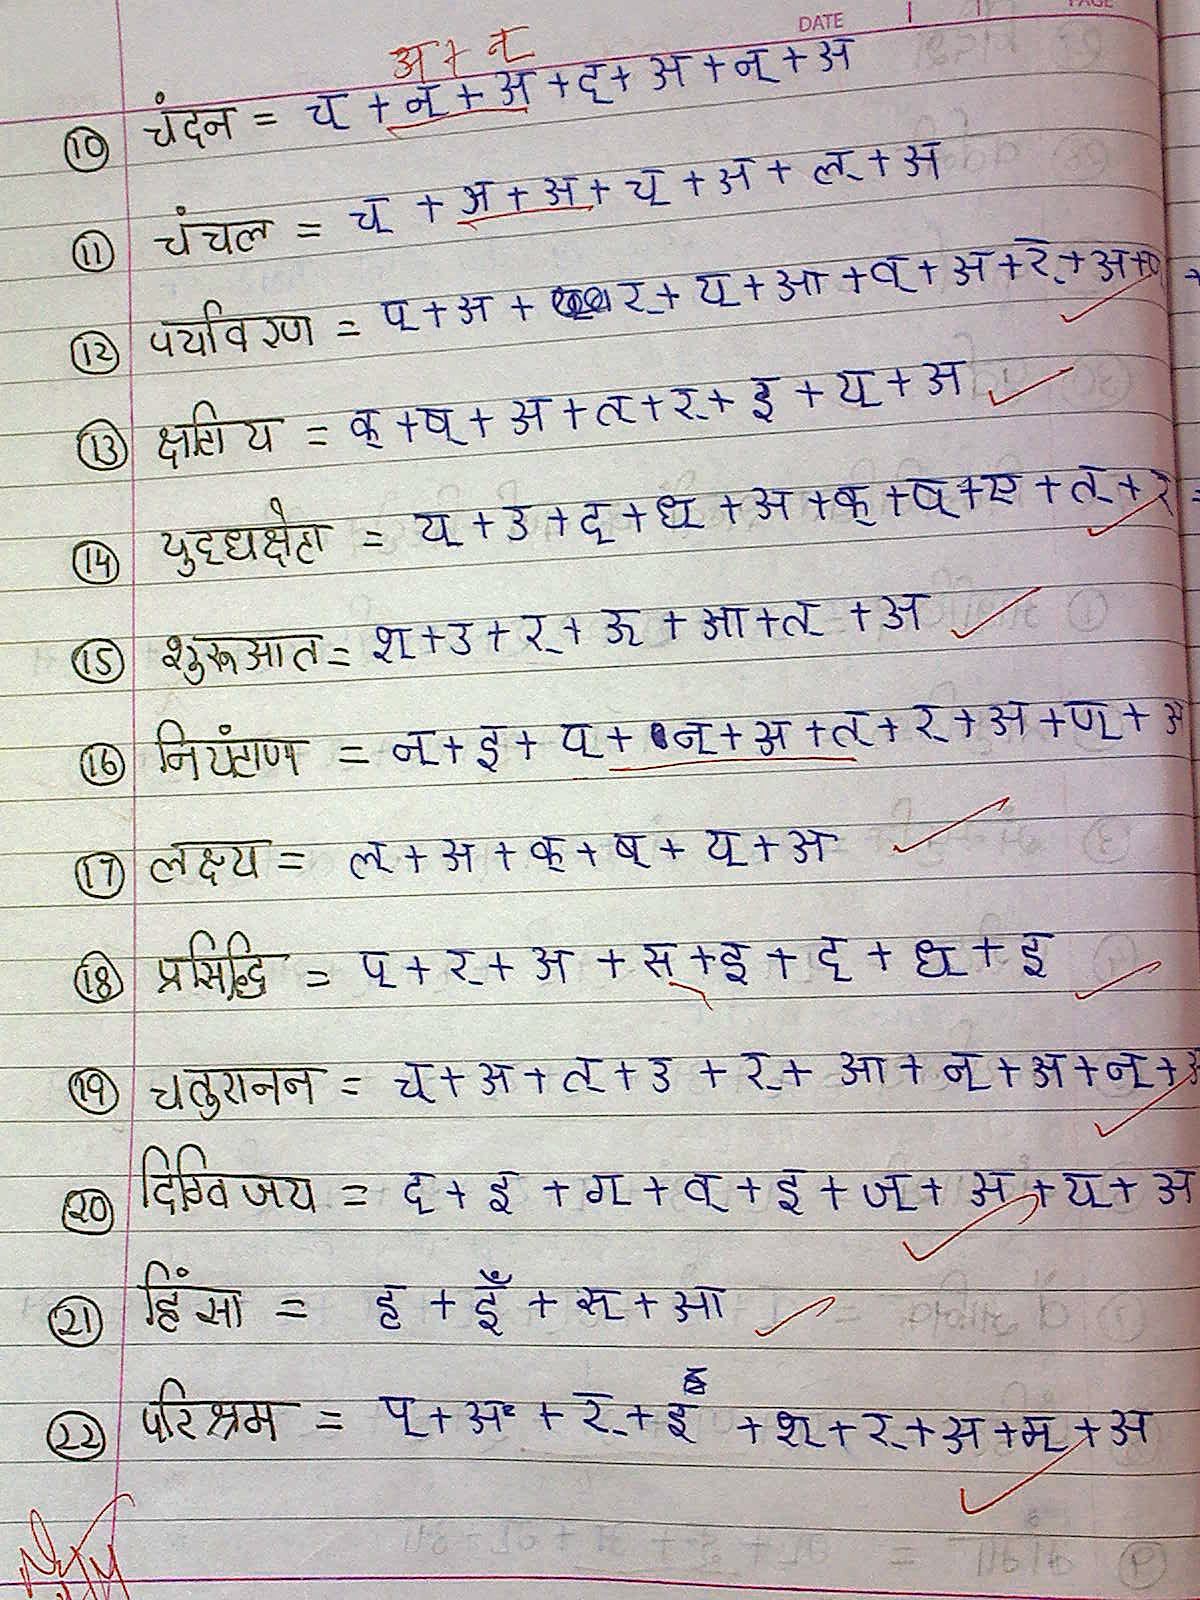 DATE
PAGE
अ + न्
⑩ चंदन = च् + न् + अ + द् + अ + न् + अ
⑪ चंचल = च् + अ + अ + च् + अ + ल् + अ
⑫ पर्यावरण = प् + अ + र् + य् + आ + व् + अ + र् + अ + ण् +
⑬ क्षत्रिय = क् + ष् + अ + त् + र् + इ + य् + अ
⑭ युद्धक्षेत्र = य् + उ + द् + ध् + अ + क् + ष् + ए + त् + र् +
⑮ शुरूआत = श् + उ + र् + ऊ + आ + त् + अ
⑯ नियंत्रण = न् + इ + य् + न् + अ + त् + र् + अ + ण् + अ
⑰ लक्ष्य = ल् + अ + क् + ष् + य् + अ
⑱ प्रसिद्धि = प् + र् + अ + स् + इ + द् + ध् + इ
⑲ चतुरानन = च् + अ + त् + उ + र् + आ + न् + अ + न् + अ
⑳ दिग्विजय = द् + इ + ग् + व् + इ + ज् + अ + य् + अ
㉑ हिंसा = ह + इँ + स् + आ
㉒ परिश्रम = प् + अ + र् + इ + श् + र् + अ + म् + अ